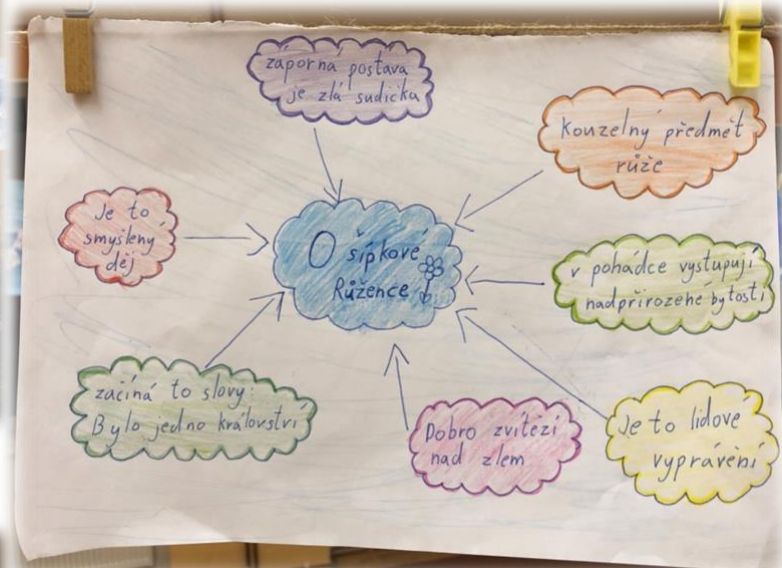 záporná postava
je zlá sudička
Kouzelný předmět
růže
Je to
smyšlený
děj
O šípkové
Růžence
v pohádce vystupují
nadpřirozené bytosti
začíná to slovy:
Bylo jedno království
Dobro zvítězí
nad zlem
Je to lidové
vyprávění